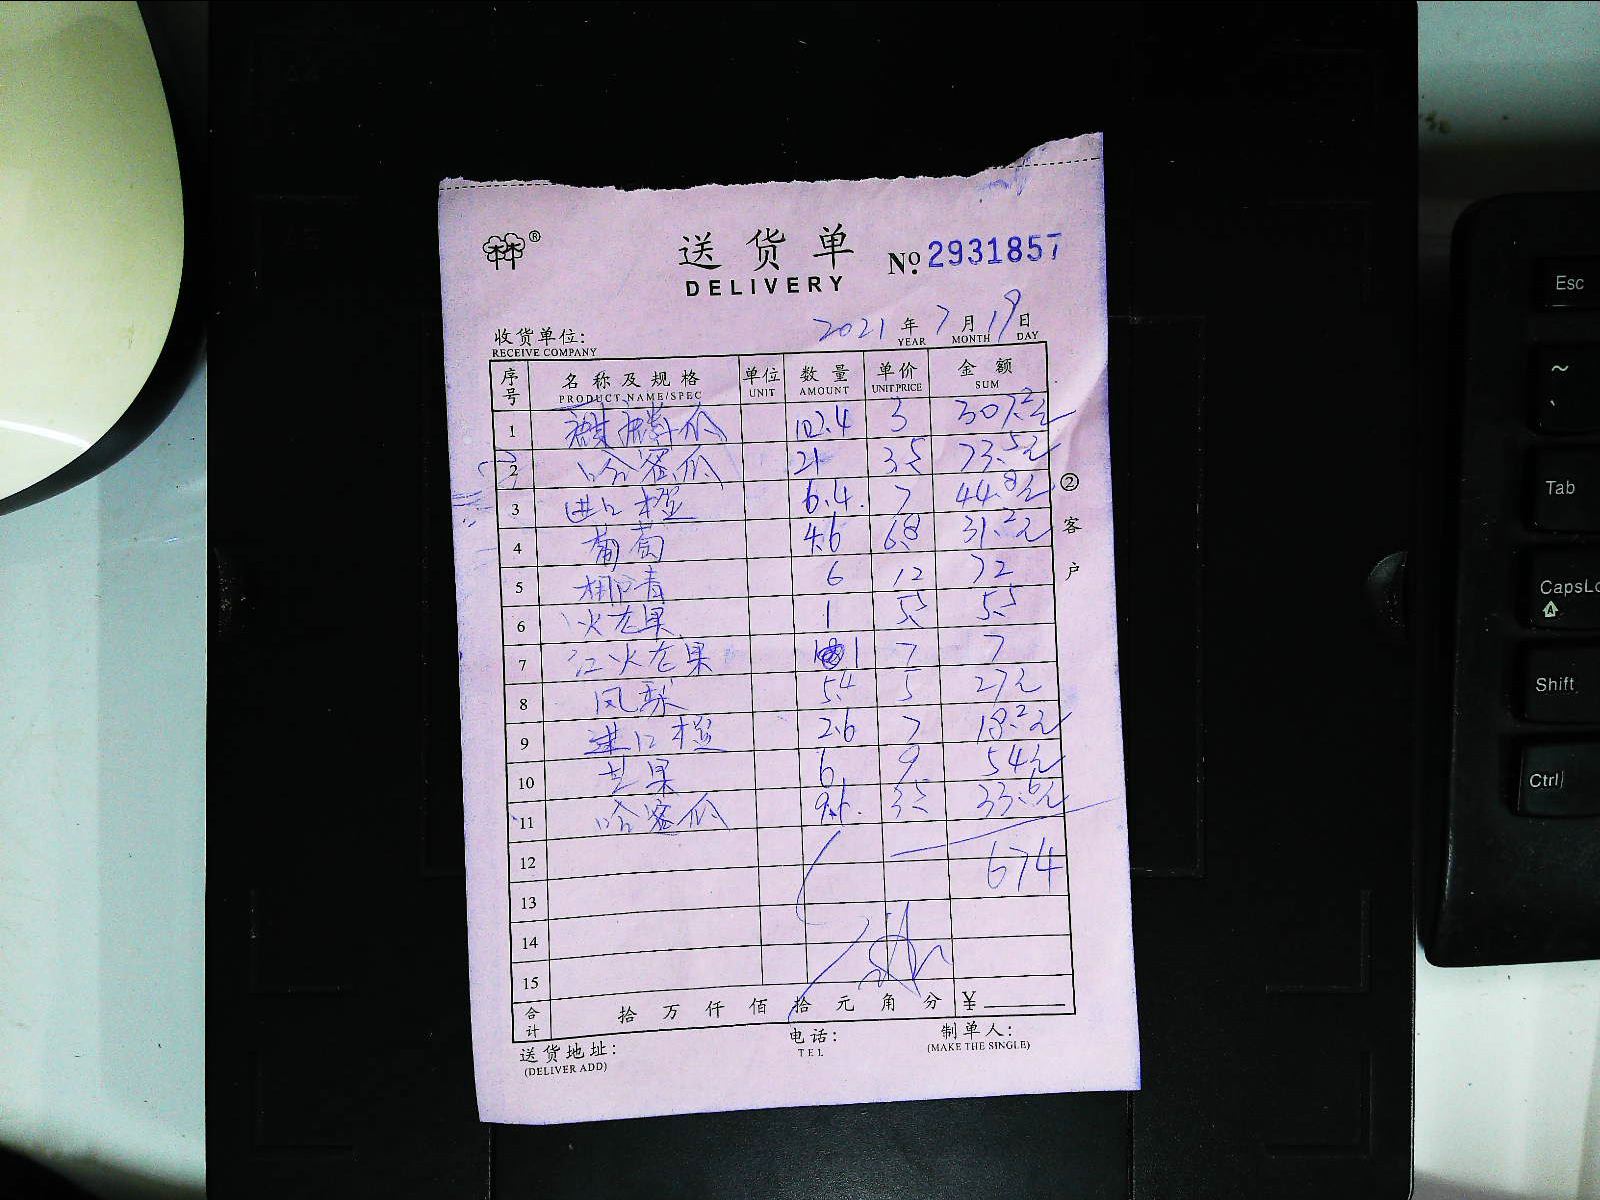 送货单
DELIVERY
No. 2931857
收货单位:
RECEIVE COMPANY
2021 年 7 月 19 日
YEAR MONTH DAY
序号 名称及规格 单位 数量 单价 金额
PRODUCT NAME/SPEC UNIT AMOUNT UNIT PRICE SUM
1 麒麟瓜 102.4 3 307.2元
2 哈密瓜 21 3.5 73.5元
3 进口橙 6.4 7 44.8元
4 葡萄 4.6 6.8 31.2元
5 椰青 6 12 72
6 火龙果 1 5.5 5.5
7 红火龙果 1 7 7
8 凤梨 5.4 5 27元
9 进口橙 2.6 7 18.2元
10 芒果 6 9 54元
11 哈密瓜 9.6 3.5 33.6元
12
674
13
14
15
合计 拾 万 仟 佰 拾 元 角 分 ¥
送货地址: 电话: 制单人:
(DELIVER ADD) TEL (MAKE THE SINGLE)
② 客户
Esc
~
Tab
CapsLo
A
Shift
Ctrl